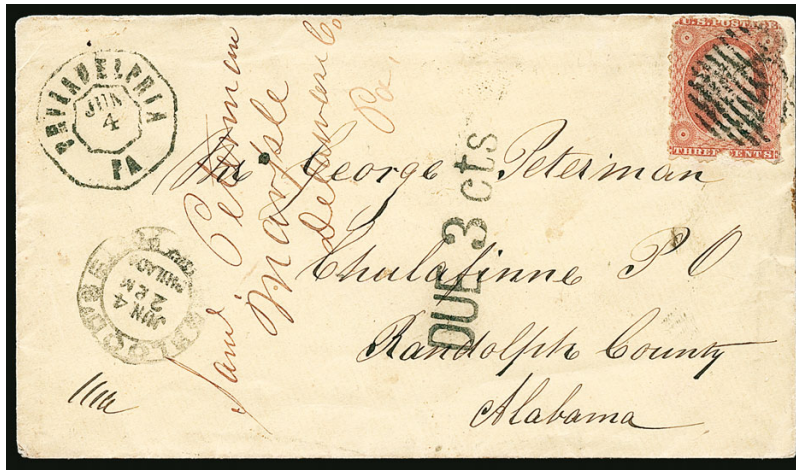 PHILADELPHIA
JUN
4
PA
U.S. POSTAGE
THREE CENTS
Saml. Peterman
Marple
Delaware Co
Pa.
DUE 3 cts
Mr George Peterman
Chulafinne P O
Randolph County
Alabama
JUN 4
2 P.M
PHILADA